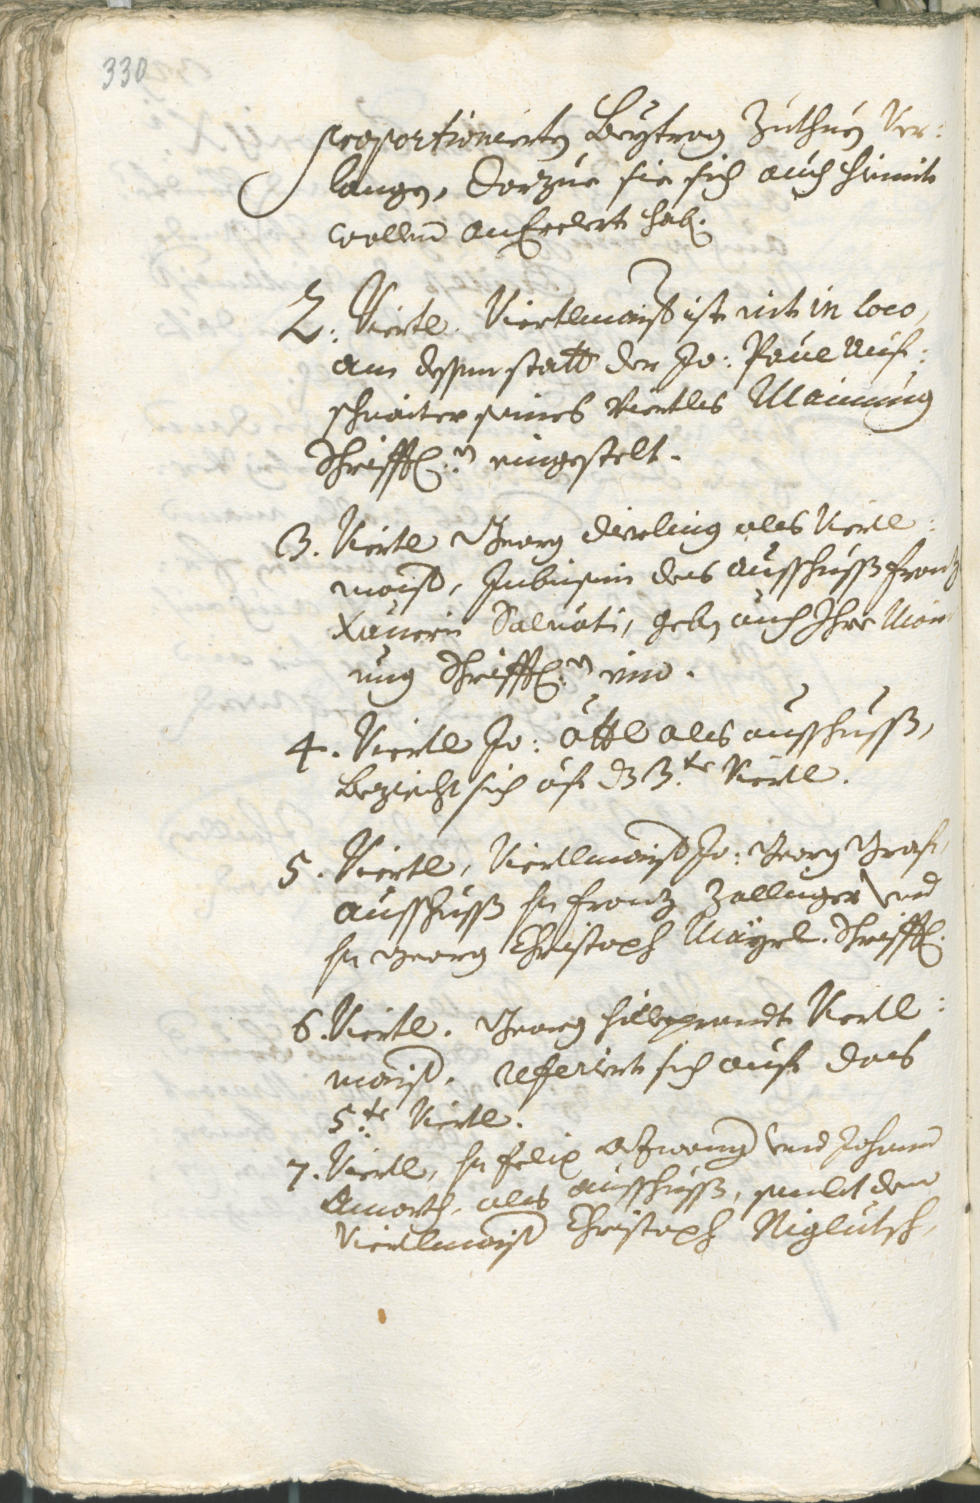 330
proportionierten Beÿtrag zuthuen Ver:
langen, Darzue sie sich auch hiemit
wollen anErclert hab.
2: Viertl. Viertlmaister ist nit in loco,
an dessen statt der Jo: Paul Auf:
schnaiter seines Viertls Mainung
Schrifftl:n eingestelt.
3. Viertl Georg Dieling als Viertl:
maister, Inbeysein des ausschuss Franz
Xaueri Saluati, geben auch Ihre Main
ung Schrifftl:n ein.
4. Viertl Jo: öttl als ausschuss,
bezieht sich auf dz 3.te Viertl.
5. Viertl, Viertlmaister Jo: Georg Graf,
ausschuss hr Franz Zallinger vnd
hr Georg Christoph Maÿrl. Schrifftl.
6. Viertl. Georg Hilleprandt Viertl:
maister. referiert sich auf das
5:te Viertl.
7. Viertl, hr Felix Azwang vnd Johann
Amorth, als ausschuss, sambt dem
Viertlmaister Christoph Niglutsch,